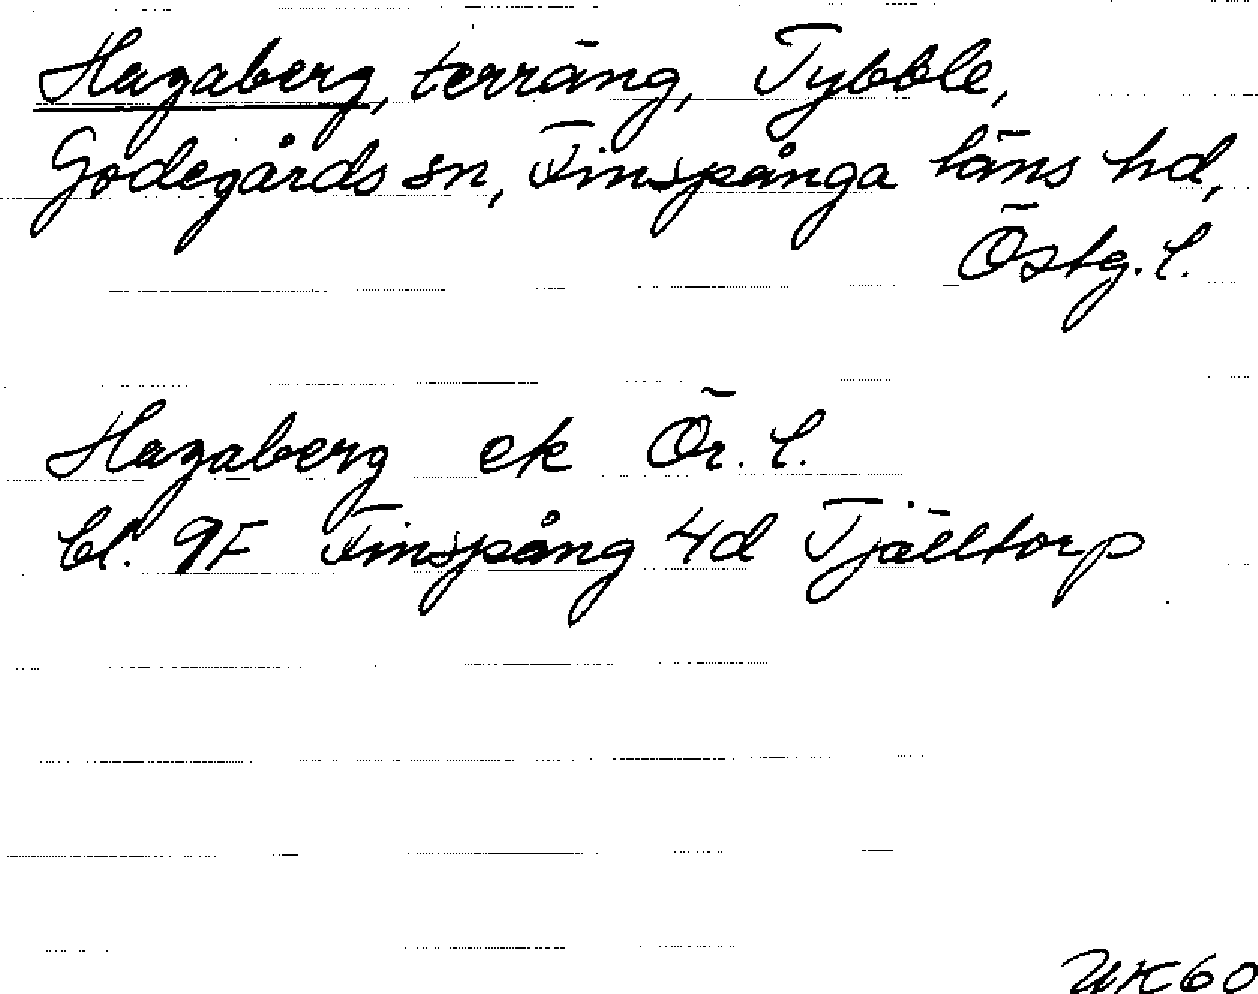 Hagaberg, terräng, Tybble,
Godegårds sn, Finspånga läns hd,
Östg. l.
Hagaberg ek Ör. l.
bl. 9F Finspång 4d Tjälltorp
UK60